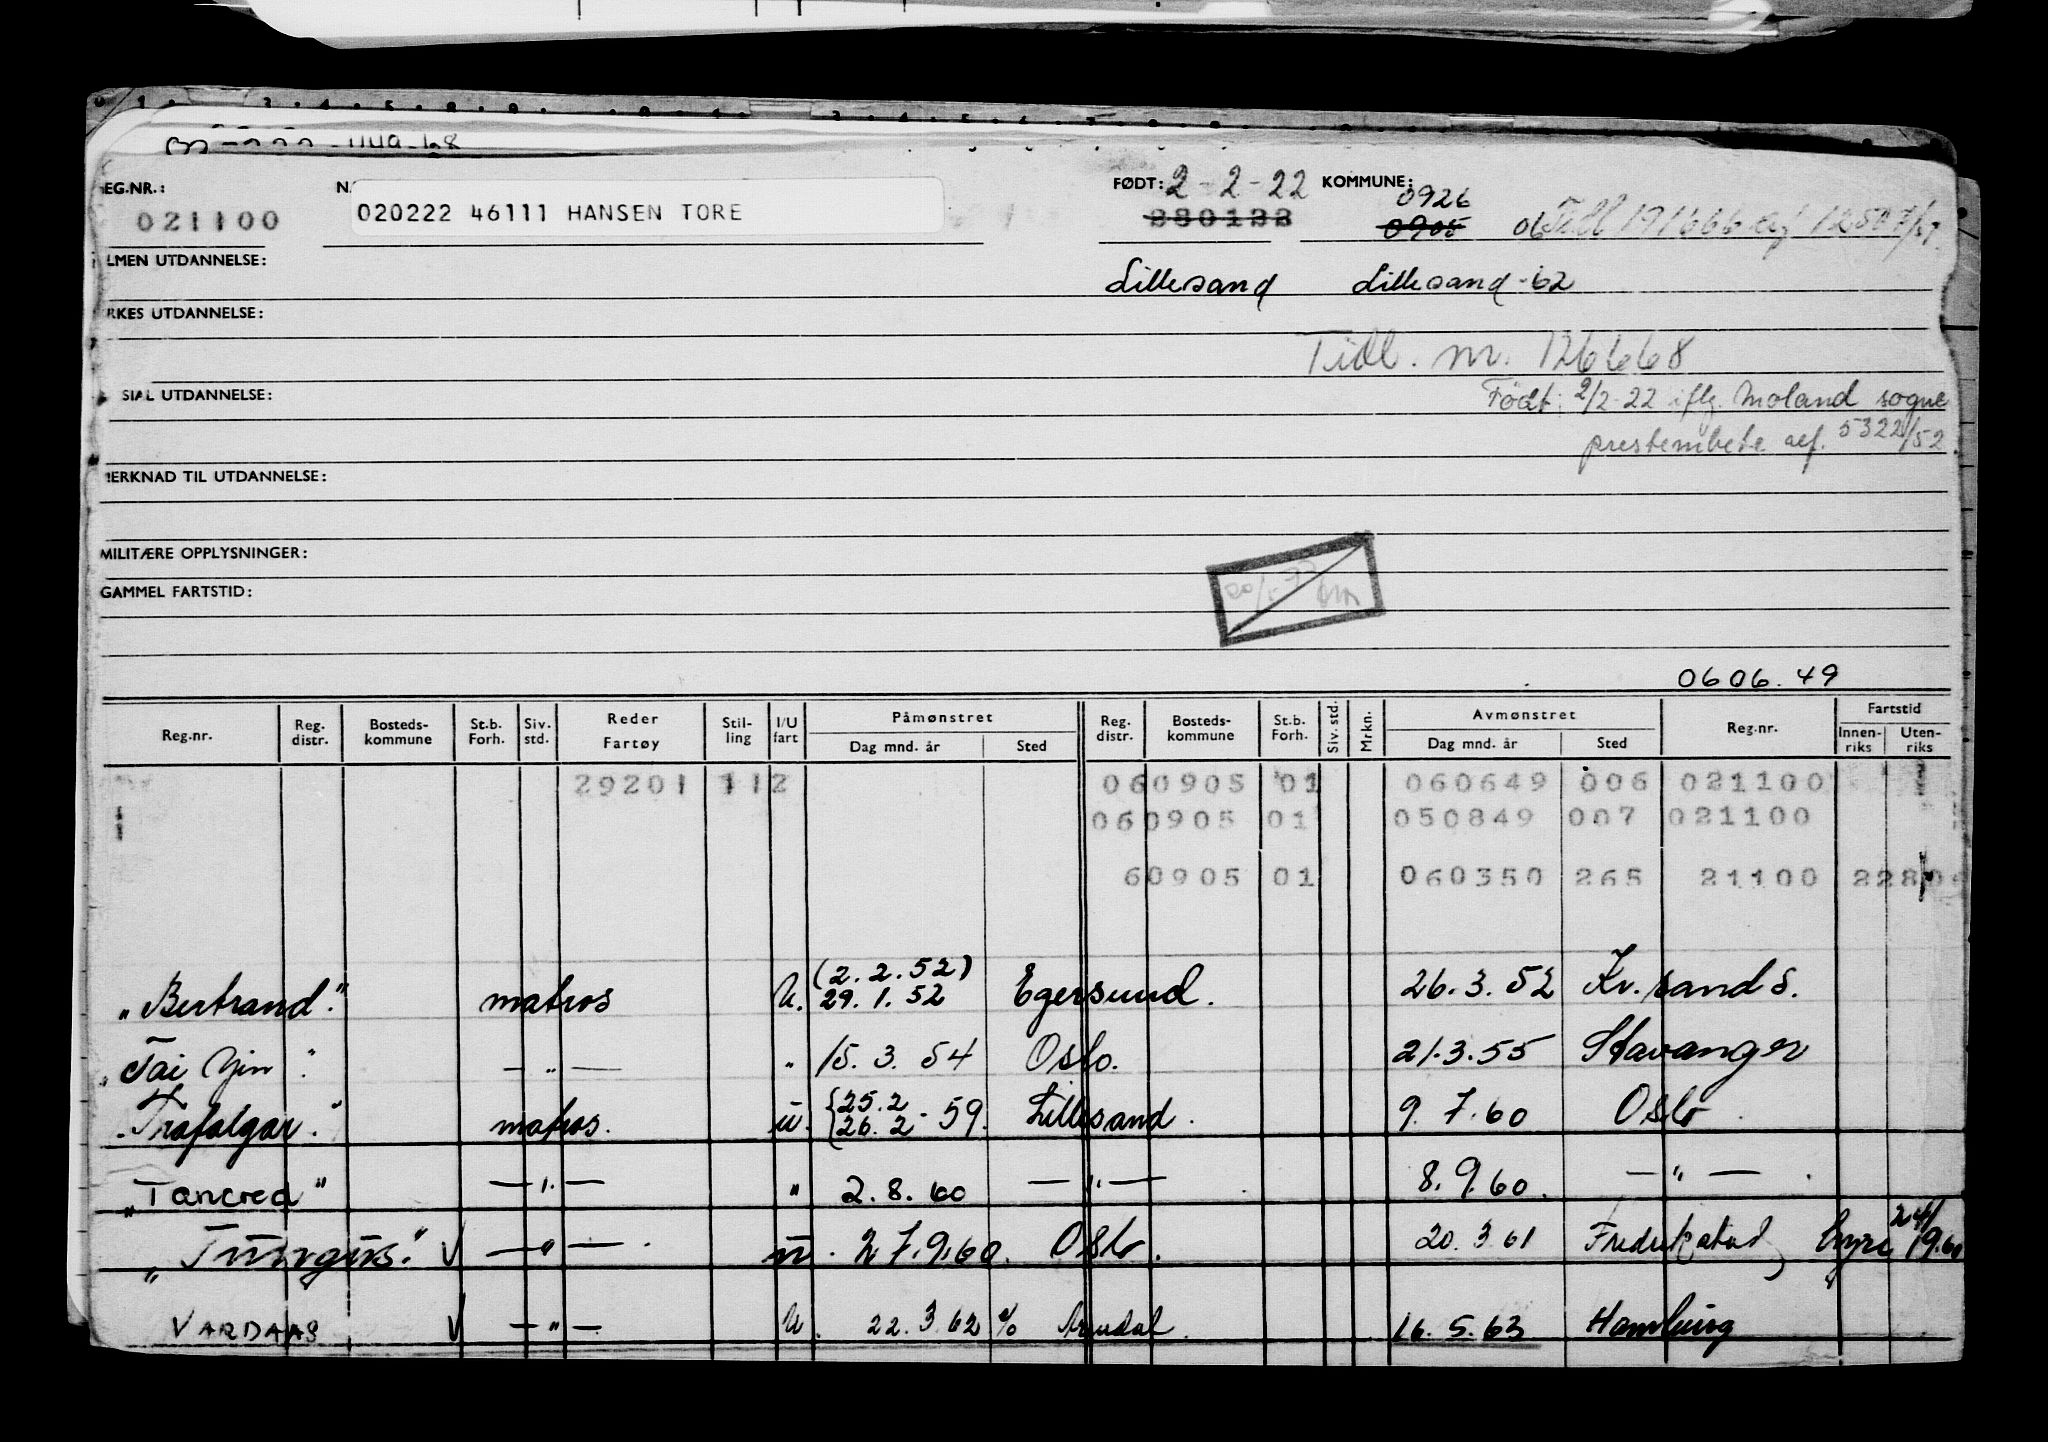 EG.NR.: N. FØDT: 2-2-22 KOMMUNE: 0926
021100 020222 46111 HANSEN TORE 280122 0905 06
LMEN UTDANNELSE: Lillesand Lillesand -62
RKES UTDANNELSE:
Tidl. nr. 126668
SIAL UTDANNELSE: Født: 2/2-22 iflg. Moland sogne
prestembete ref. 5322/52
ERKNAD TIL UTDANNELSE:
MILITÆRE OPPLYSNINGER:
GAMMEL FARTSTID:
0606.49
Reg.nr. Reg. distr. Bosteds-kommune St.b. Forh. Siv. std. Reder Fartøy Stil-ling I/U fart Påmønstret Dag mnd. år Sted Reg. distr. Bosteds-kommune St.b. Forh. Siv. std. Mrkn. Avmønstret Dag mnd. år Sted Reg.nr. Fartstid Innen-riks Uten-riks
29201 112 060905 01 060649 006 021100
060905 01 050849 007 021100
60905 01 060350 265 21100
(2.2.52)
"Bertrand" matros U. 29.1.52 Egersund. 26.3.52 Kr.sand S.
"Tai Yin" — " — " 15.3.54 Oslo. 21.3.55 Stavanger
"Trafalgar" matros. u. {25.2 26.2 -59. Lillesand. 9.7.60 Oslo.
"Tancred" — " — " 2.8.60 — " — 8.9.60. — " —
"Tungus" V — " — u. 27.9.60. Oslo. 20.3.61 Fredrikstad,
VARDAAS V — " — U. 22.3.62 Arendal. 16.5.63 Hamburg